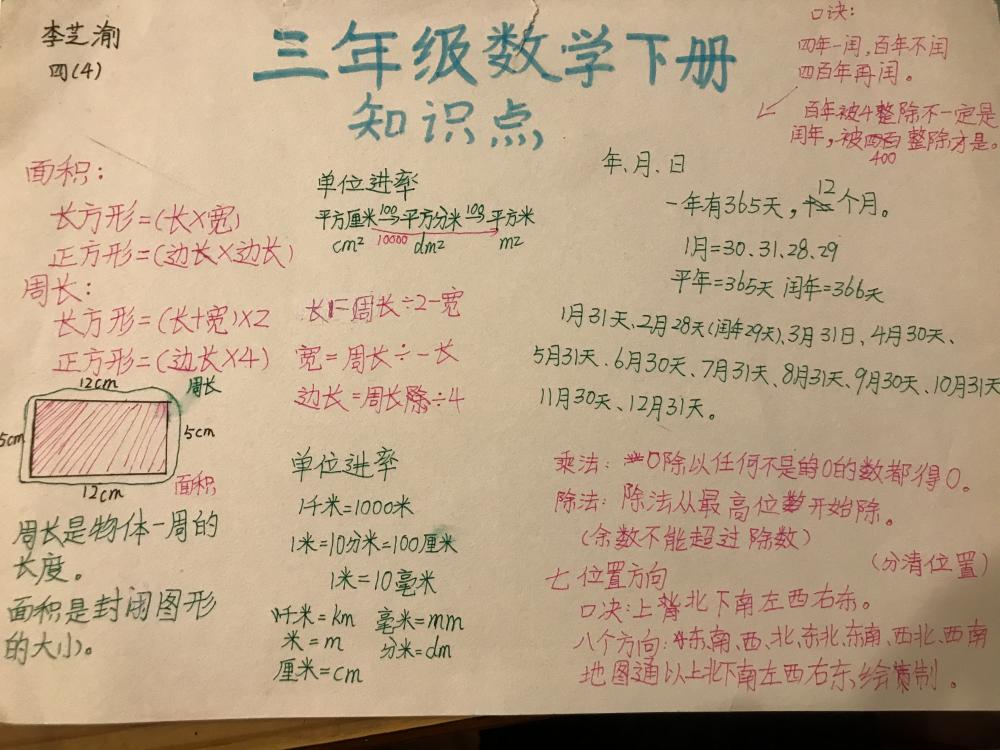 李芝渝
四(4)
三年级数学下册
知识点
口诀：
四年一闰，百年不闰
四百年再闰。
百年被4整除不一定是
闰年，被400整除才是。
面积：
长方形=(长×宽)
正方形=(边长×边长)
周长：
长方形=(长+宽)×2
正方形=(边长×4)
12cm
周长
5cm
5cm
12cm
面积
周长是物体一周的
长度。
面积是封闭图形
的大小。
单位进率
平方厘米 100→ 平方分米 100→ 平方米
cm² 10000 dm² m²
长=周长÷2-宽
宽=周长÷-长
边长=周长÷4
单位进率
1千米=1000米
1米=10分米=100厘米
1米=10毫米
千米=km 毫米=mm
米=m 分米=dm
厘米=cm
年、月、日
一年有365天，12个月。
1月=30、31、28、29
平年=365天 闰年=366天
1月31天、2月28天(闰年29天)、3月31日、4月30天、
5月31天、6月30天、7月31天、8月31天、9月30天、10月31天
11月30天、12月31天。
乘法：0除以任何不是的0的数都得0。
除法：除法从最高位开始除。
(余数不能超过除数)
(分清位置)
七位置方向
口决：上北下南左西右东。
八个方向：东、南、西、北、东北、东南、西北、西南
地图通以上北下南左西右东、绘制。